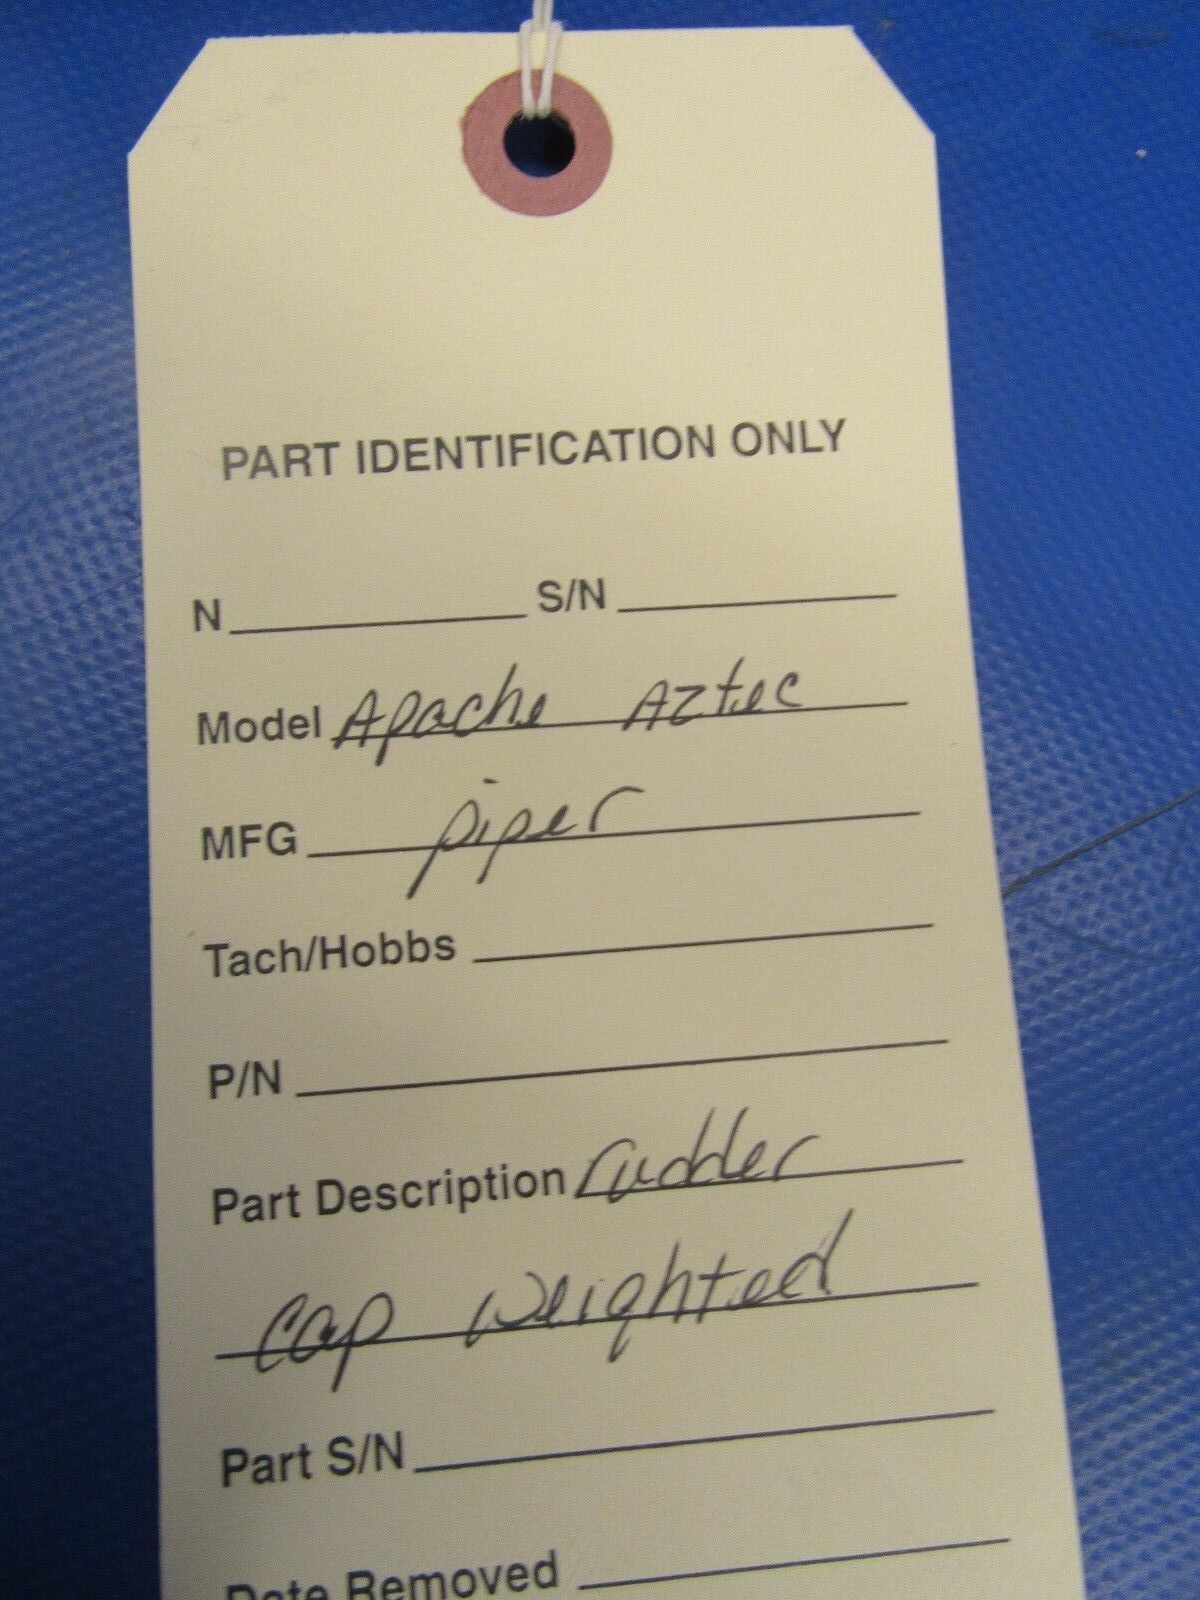 PART IDENTIFICATION ONLY
N S/N
Model Apache Aztec
MFG piper
Tach/Hobbs
P/N
Part Description rudder
cap weighted
Part S/N
Date Removed